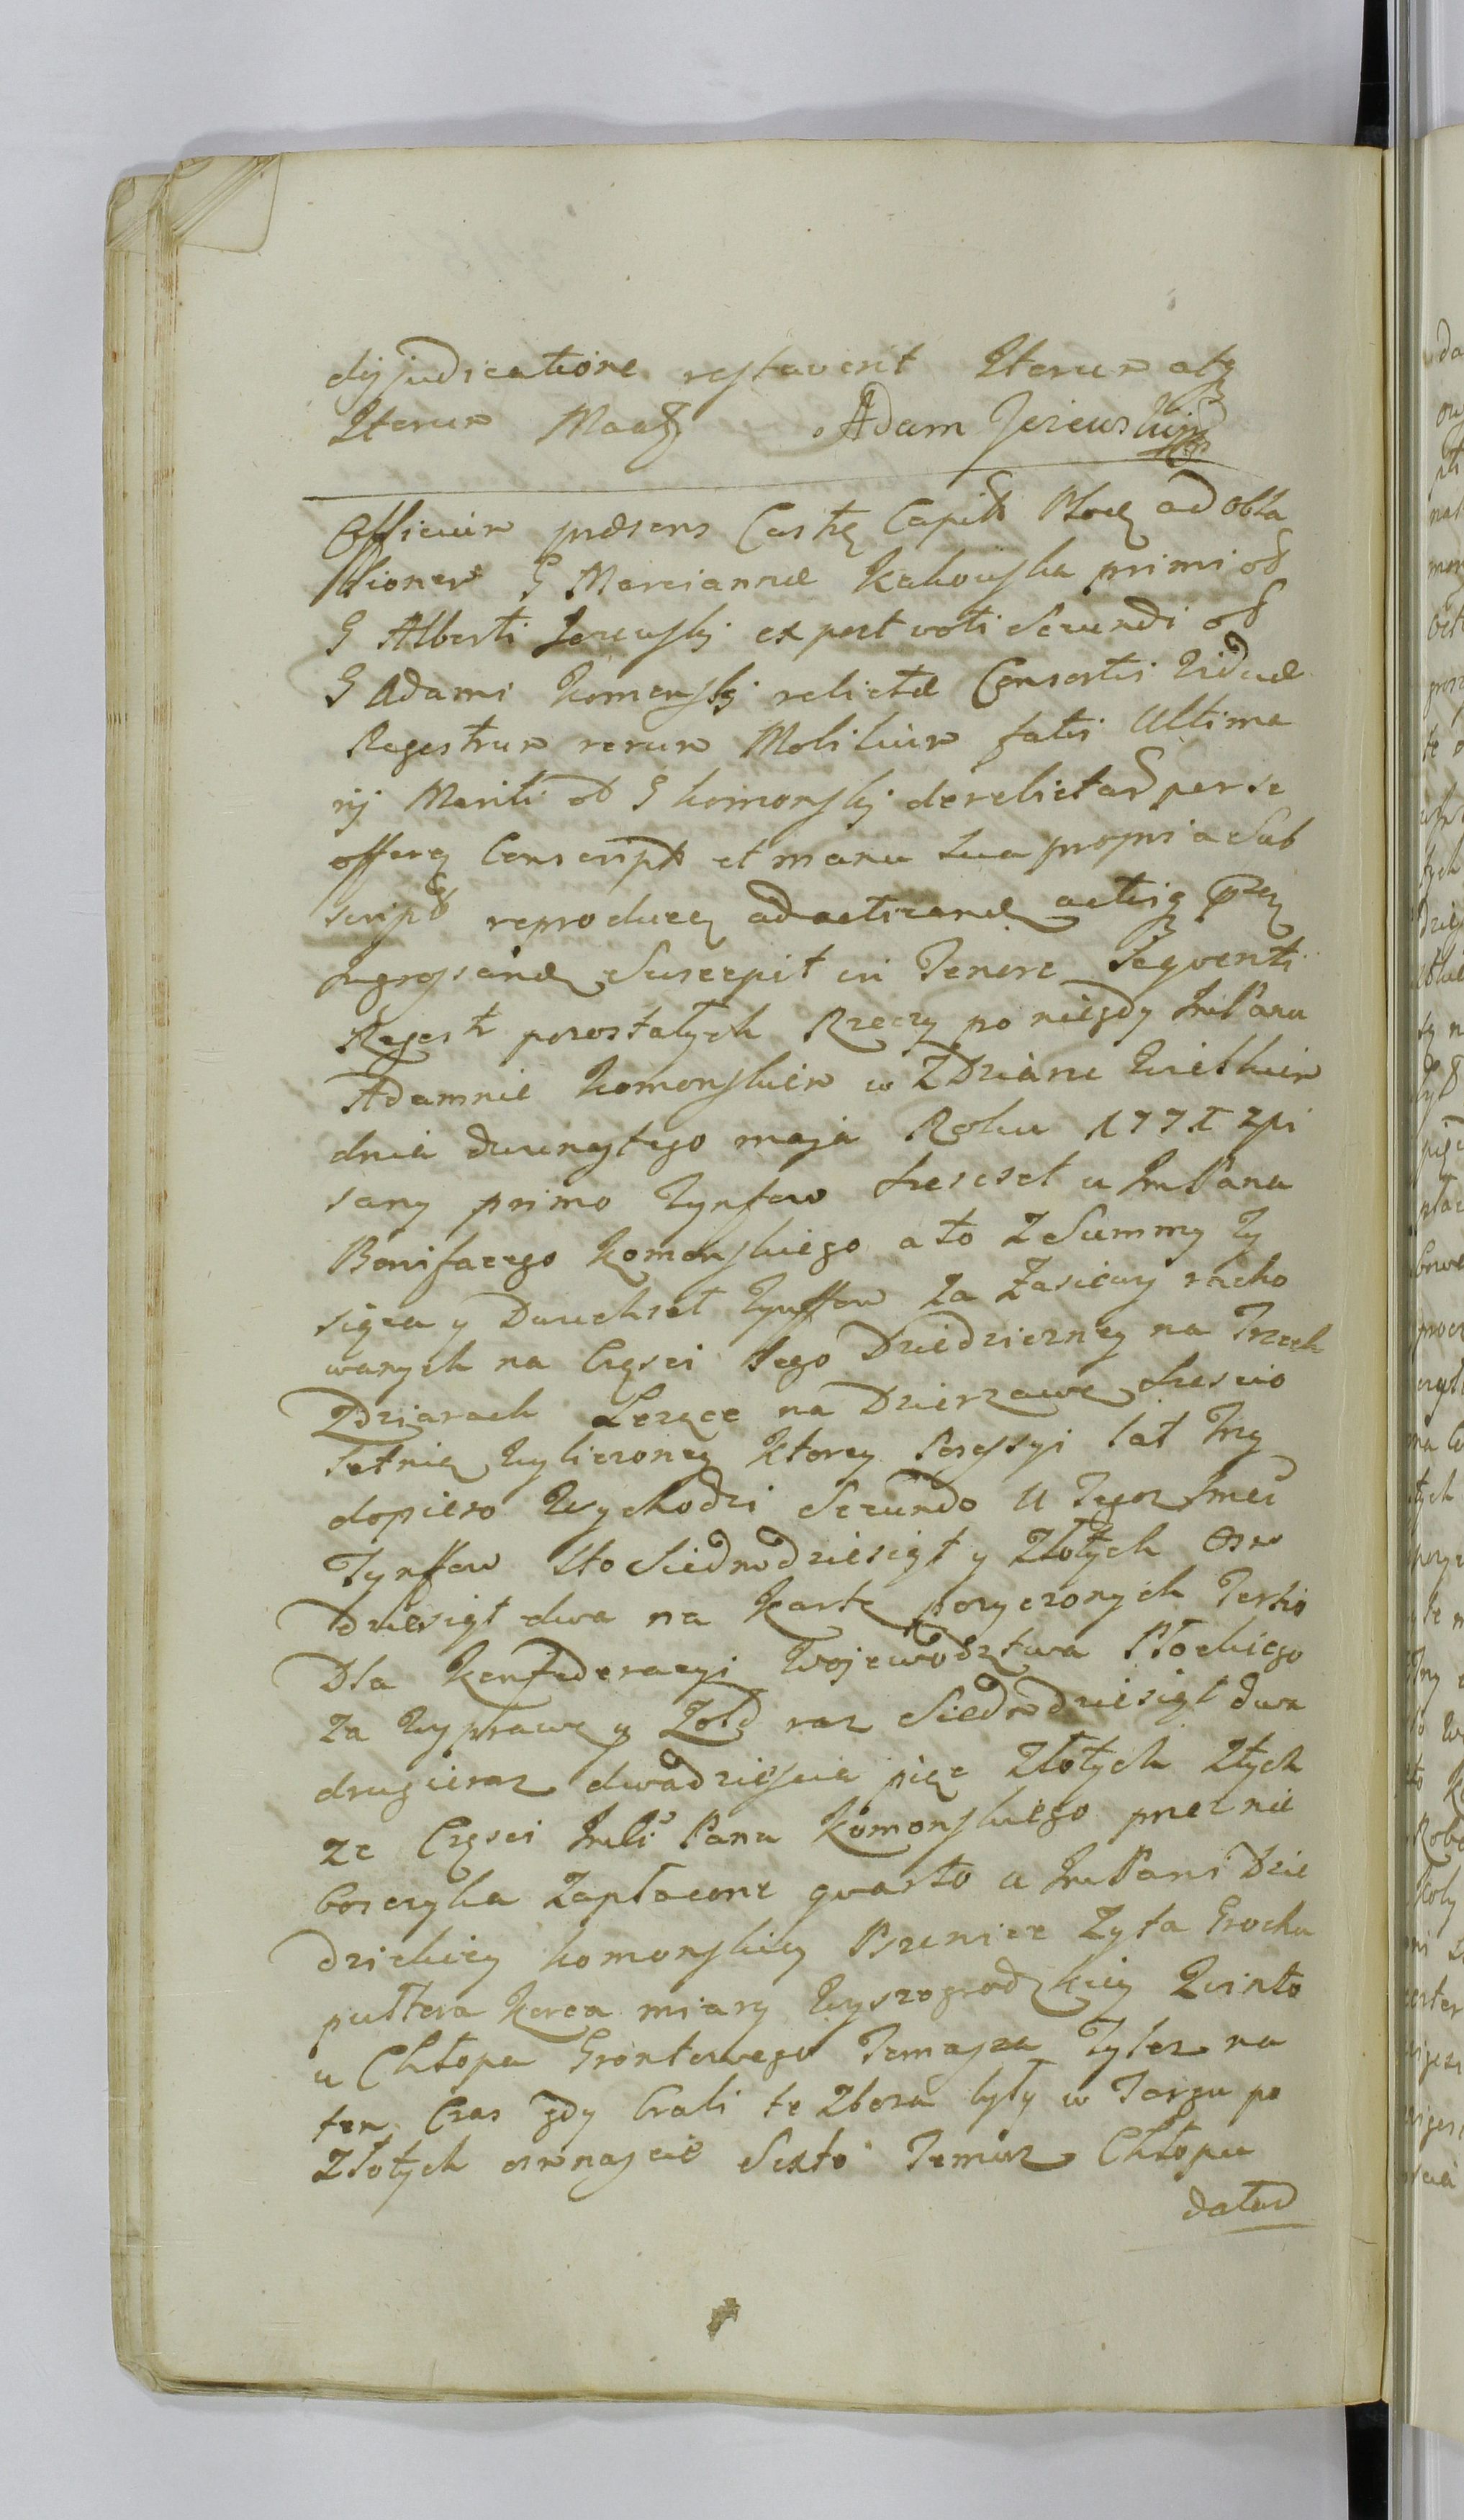 disjudicatione restaverit Iterum atq
Iterum Maaſ Adam Jeziewskimp
Officium præsens Castr Capit Ploc ad obla
tionem G Mariannæ Kakowska primi olim
G Alberti Jerewski ex post voti Secundi olim
G Adami Komorski relictæ Consortis Viduæ
Regestrum rerum Mobilium fatis Ultima
rij Mariti olim G Komorskj derelictarum per se
offerᶎ Conscript et manu sua propria sub
script reproducᶎ ad acticandᶎ actisq pzᶎ
Ingrossandᶎ Suscepit in Tenore Seqventi
Regestr pozostałych Rzeczy po niegdy ImPanu
Adamnie Komorskim w Zdziarze Wielkim
dnia dwunastego maja Roku 1771 zpi
sany primo Tynfow szescset u ImPana
Bonifacego Komorskiego a to z Summy Ty
siąca y Dwuchset Tynffow za Zasiewy racho
wanych na Częsci Jego Dziedziczney na Trzech
Zdziarach Lezące na Dzierzawe szescio
letnią Wyliczoney Ktorey Possessyi lat Trzy
dopiero Wychodzi Secundo U Tegoz Imci
Tynffow sto Siedmdziesiąt y Złotych Osm
dziesiąt dwa na Karte pozyczonych Tertio
Dla Konfederacyi Wojewodztwa Płockiego
za Wyprawe y Zołd raz Siedmdziesiąt dwa
drugieraz dwadziescia pięc Złotych Złych
ze Częsci Imci Pana Komorskiego przeznie
boszczyka Zapłacone qvarto u ImPani Dzie
dzickiey Komorskiey Pszenice Zyta Grochu
pułtora Korca miary Wyszogrodzkiey Qvinto
u Chłopa Grontowego Tomasza Tylez na
ten Czas gdy brali te Zboza były w Targu po
Złotych osmnascie Sexto Temuz Chłopu
datum